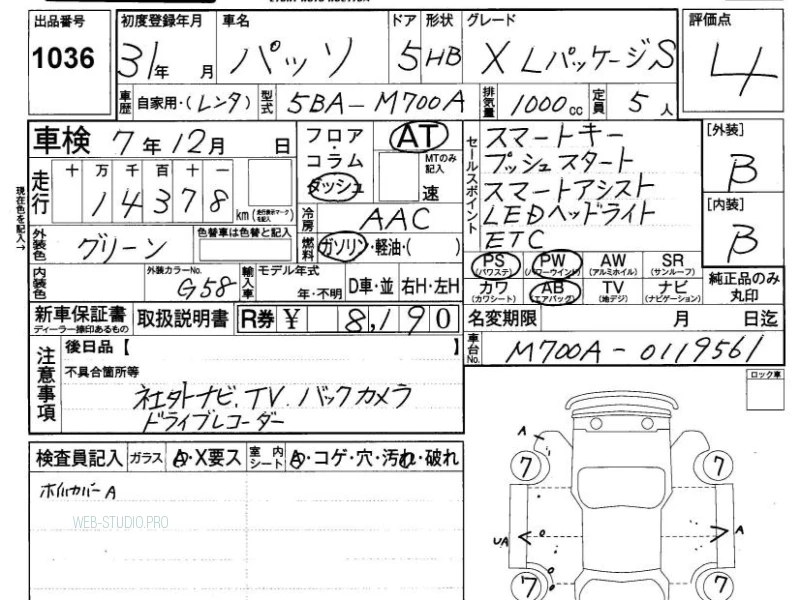 出品番号
1036
初度登録年月
31年 月
車名
パッソ
ドア 形状
5 HB
グレード
X LパッケージS
評価点
4
車歴 自家用・(レンタ)
型式 5BA-M700A
排気量 1000cc
定員 5人
車検 7年12月 日
走行 十 万 千 百 十 一
14378 km (走行表示マークを記入)
現在色を記入→
外装色 グリーン
色替車は色替と記入
内装色
外装カラーNo.
G58
フロア・コラム
ダッシュ
AT
MTのみ記入
速
冷房 AAC
燃料 ガソリン・軽油・( )
輸入車 モデル年式
年・不明
D車・並 右H・左H
セールスポイント
スマートキー
プッシュスタート
スマートアシスト
LEDヘッドライト
ETC
[外装]
B
[内装]
B
PS (パワステ) PW (パワーウインド) AW (アルミホイル) SR (サンルーフ)
カワ (カワシート) AB (エアバッグ) TV (地デジ) ナビ (ナビゲーション)
純正品のみ丸印
新車保証書
ディーラー捺印あるもの
取扱説明書
R券 ¥ 8,190
名変期限 月 日迄
車台No. M700A-0119561
注意事項
後日品【 】
不具合箇所等
社外ナビ、TV、バックカメラ
ドライブレコーダー
ロック車
検査員記入 ガラス A・X要ス 室内シート A・コゲ・穴・汚れ・破れ
ホイルカバーA
WEB-STUDIO.PRO
A
7
7
UA
A
7
7